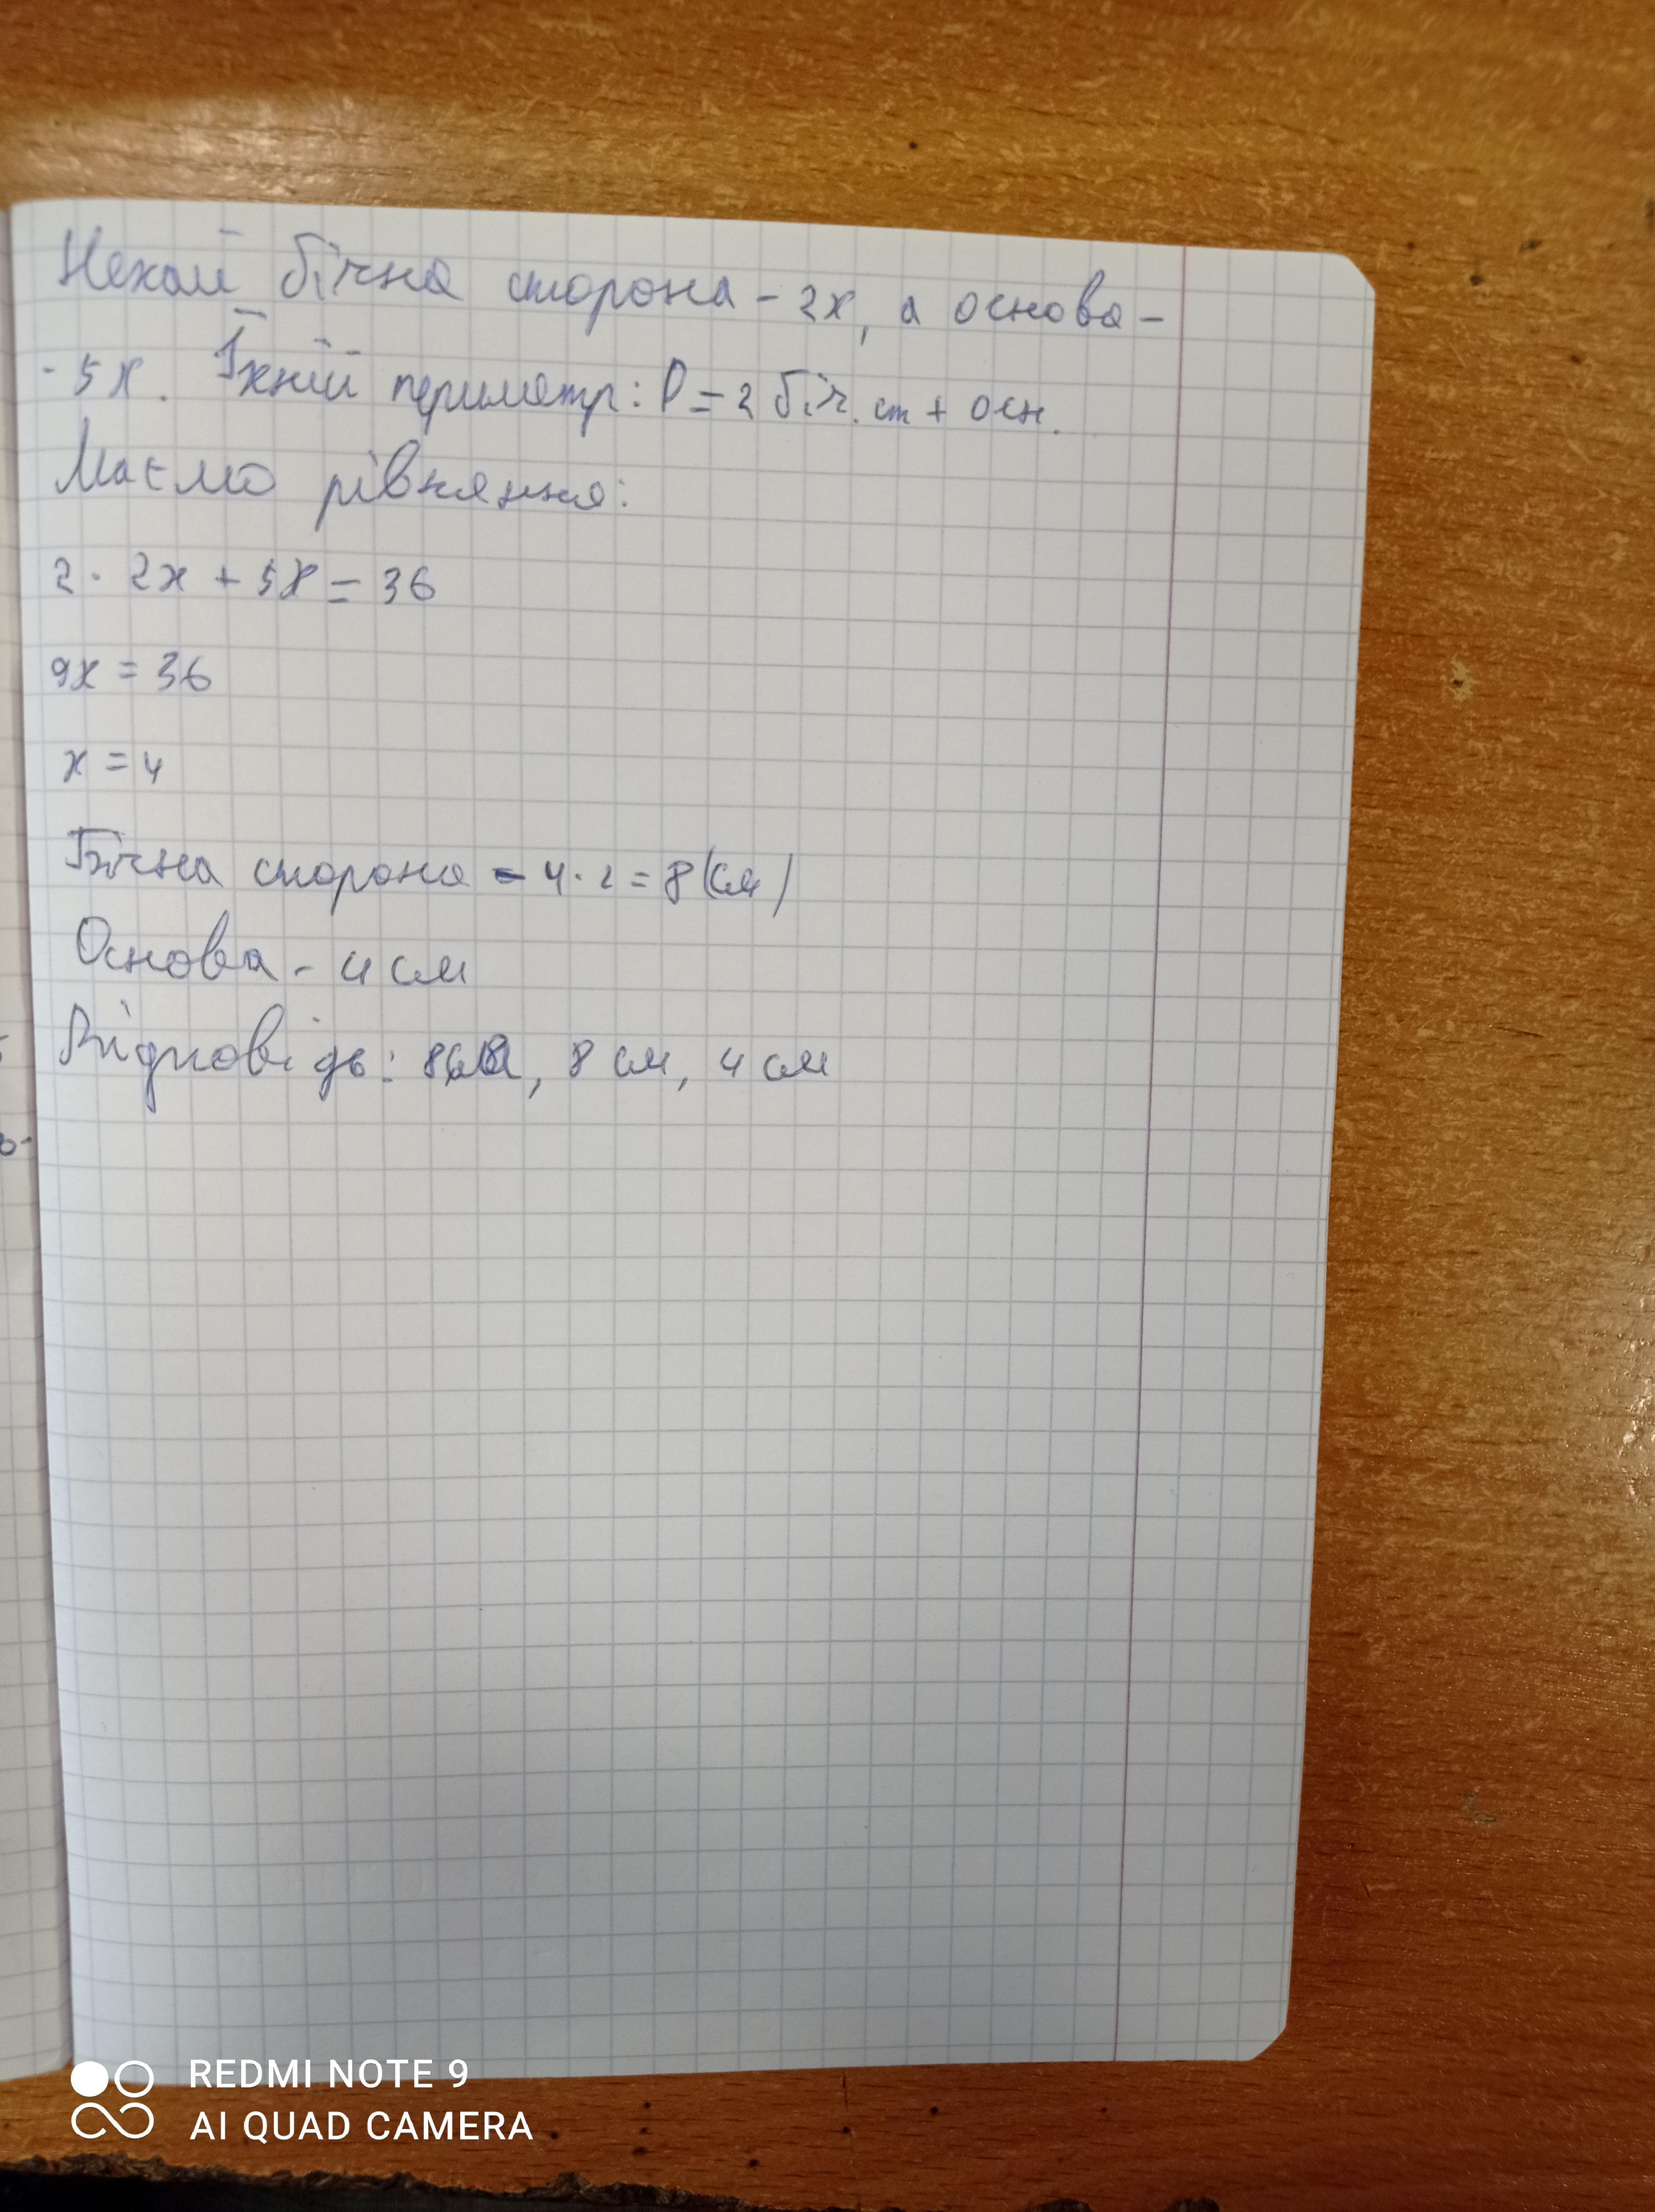 Нехай бічна сторона - 2х, а основа -
- 5х. Їхній периметр: Р = 2 біч. ст + осн.
Маємо рівняння:
2 · 2х + 5х = 36
9х = 36
х = 4
Бічна сторона - 4 · 2 = 8 (см)
Основа - 4 см
Відповідь: 8 см, 8 см, 4 см
REDMI NOTE 9
AI QUAD CAMERA